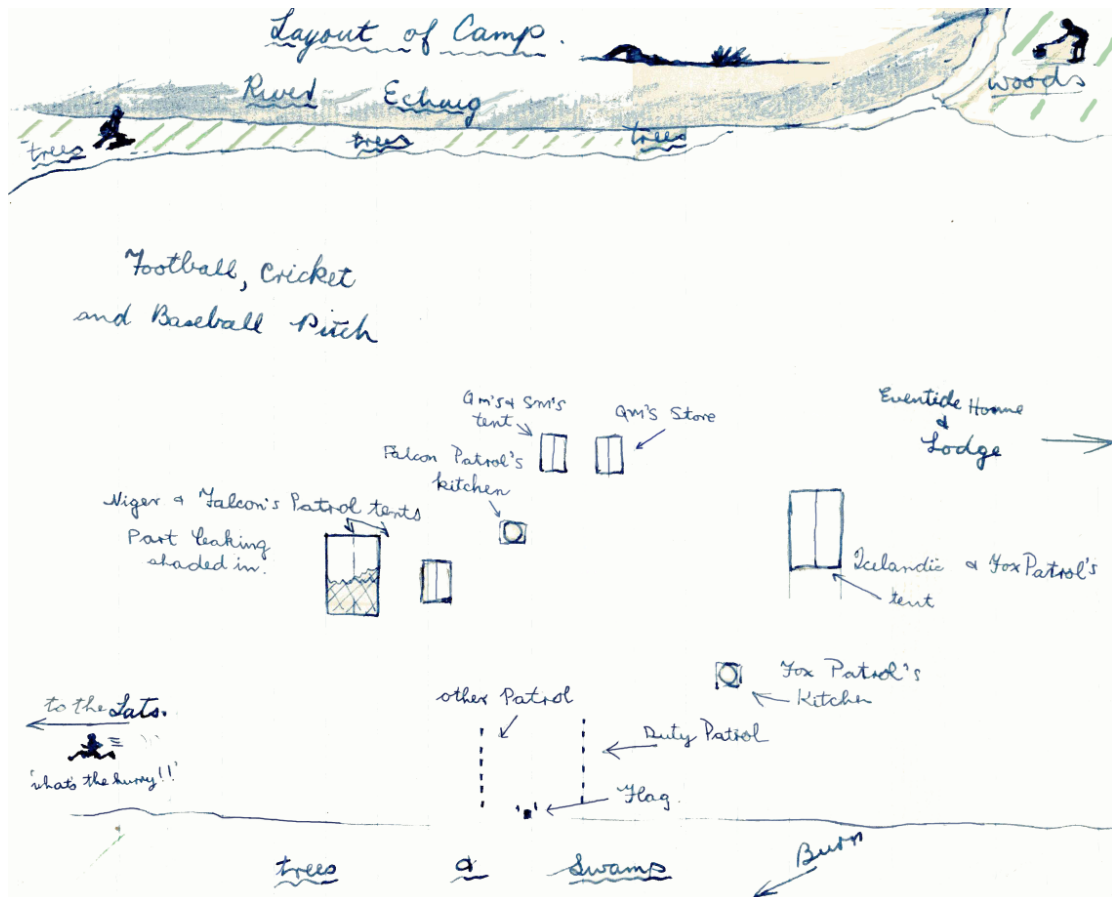 Layout of Camp.
River Echaig
woods
trees
trees
trees
Football, Cricket
and Baseball Pitch
Qm's & Sm's
tent
Qm's Store
Eventide Home
&
Lodge
Falcon Patrol's
kitchen
Niger & Falcon's Patrol tents
Part leaking
shaded in.
Icelandic & Fox Patrol's
tent
Fox Patrol's
Kitchen
to the Lats.
'what's the hurry!!'
other Patrol
Duty Patrol
Flag.
trees & Swamp
Burn